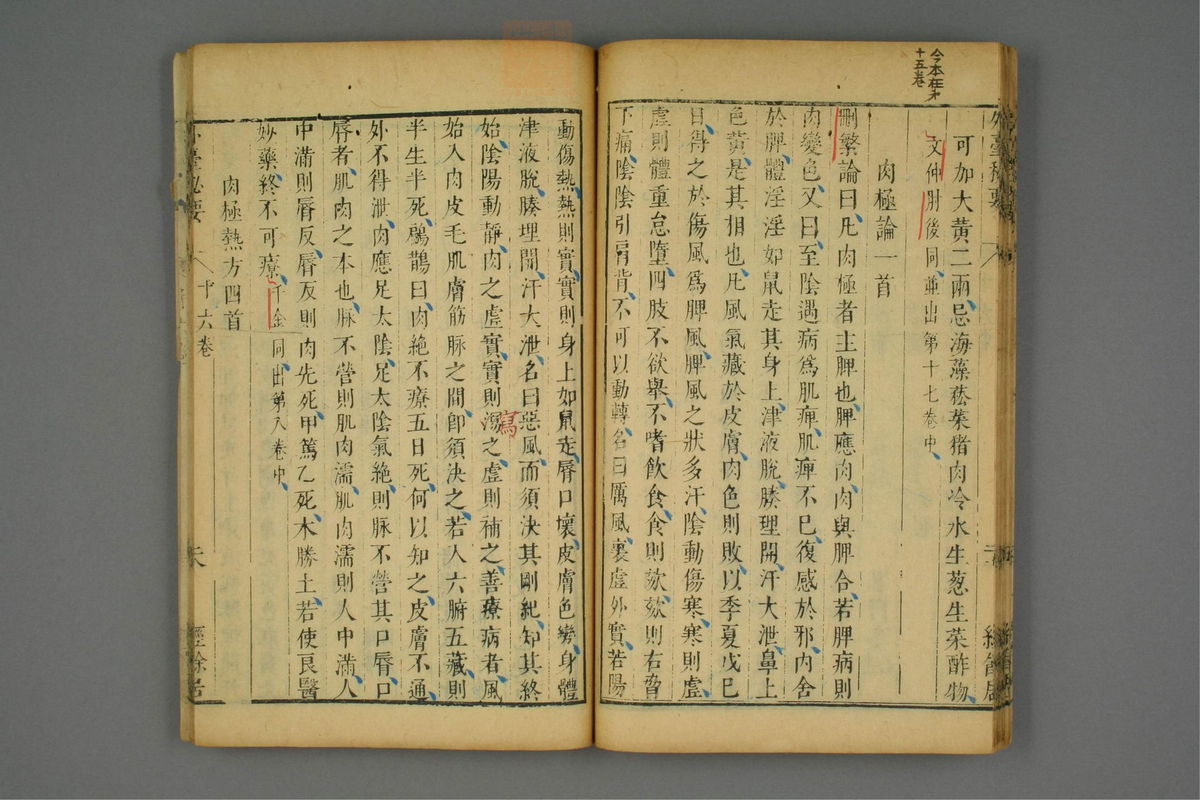 今本在第
十五卷
可加大黃二兩忌海藻菘菜猪肉冷水生葱生菜酢物
文仲肘後同並出第十七卷中
肉極論一首
刪繁論曰凡肉極者主脾也脾應肉肉與脾合若脾病則
肉變色又曰至陰遇病爲肌痺肌痺不已復感於邪內舍
於脾體淫淫如鼠走其身上津液脫腠理開汗大泄鼻上
色黃是其相也凡風氣藏於皮膚肉色則敗以季夏戊己
日得之於傷風爲脾風脾風之狀多汗陰動傷寒寒則虛
虛則體重怠墮四肢不欲舉不嗜飲食食則欬欬則右脅
下痛陰陰引肩背不可以動轉名曰厲風裏虛外實若陽
動傷熱熱則實實則身上如鼠走唇口壞皮膚色變身體
津液脫腠理開汗大泄名曰惡風而須決其剛紀知其終
始陰陽動靜肉之虛實實則瀉之虛則補之善療病者風
寫
始入肉皮毛肌膚筋脉之間卽須決之若入六腑五藏則
半生半死扁鵲曰肉絕不療五日死何以知之皮膚不通
外不得泄肉應足太陰足太陰氣絕則脉不營其口唇口
唇者肌肉之本也脉不營則肌肉濡肌肉濡則人中滿人
中滿則唇反唇反則肉先死甲篤乙死木勝土若使良醫
妙藥終不可療千金同出第八卷中
肉極熱方四首
外臺秘要
十六卷
經餘居